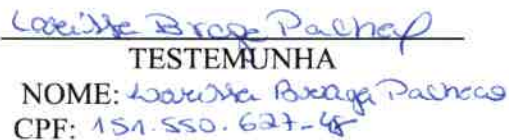 Larissa Braga Pacheco
TESTEMUNHA
NOME: Larissa Braga Pacheco
CPF: 151.550.627-48